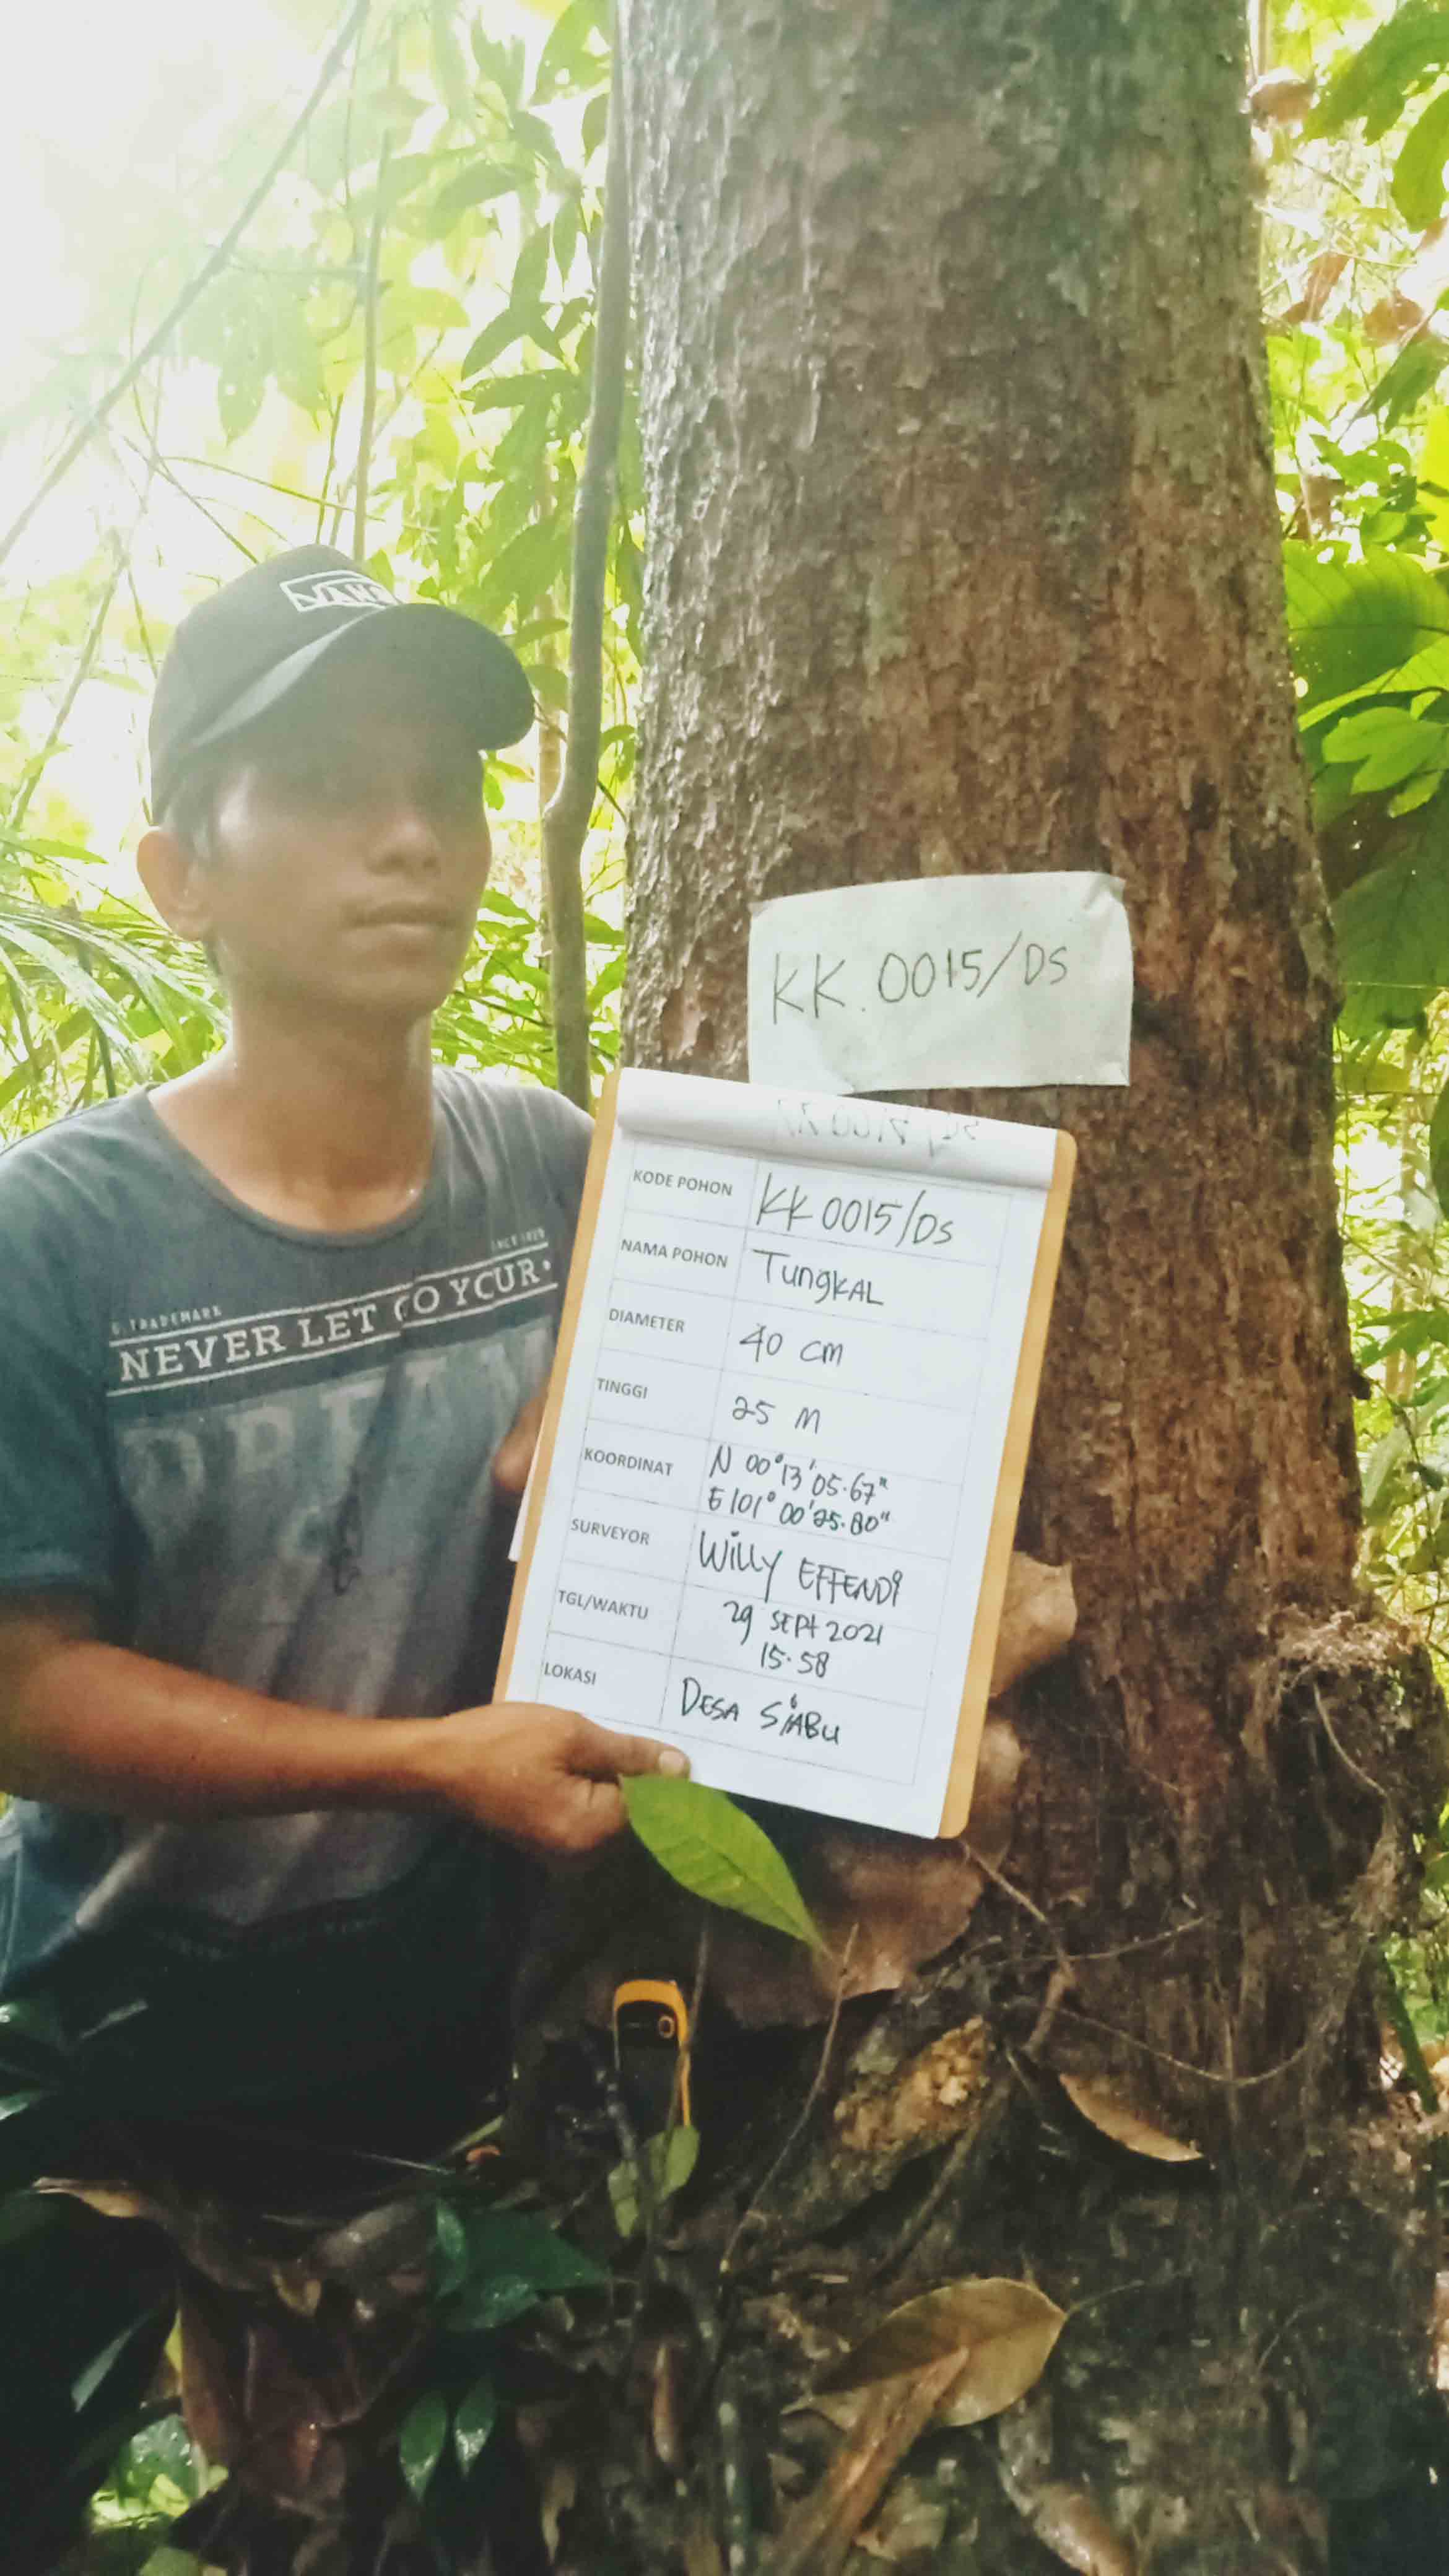 VANS
KK.0015/DS
KODE POHON KK 0015/DS
NAMA POHON TungKAL
DIAMETER 40 cm
TINGGI 25 M
KOORDINAT N 00°13'05.67"
E 101° 00'25.80"
SURVEYOR WiLLY EFFENDi
TGL/WAKTU 29 SEPt 2021
15.58
LOKASI DESA SiABU
TRADEMARK
NEVER LET GO YOUR